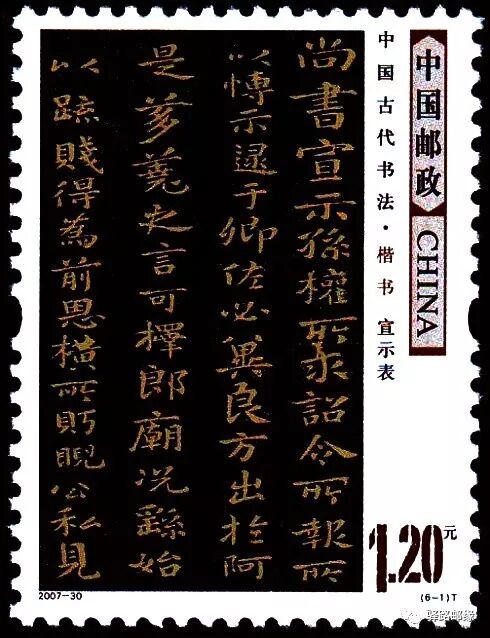 中国邮政 CHINA
中国古代书法·楷书 宣示表
尚書宣示孫權所求詔令所報所
以博示逮于卿佐必冀良方出於阿
是芻蕘之言可擇郎廟况繇始
以疏賤得為前恩横所眄睨公私見
1.20元
2007-30
(6-1)T
驿路邮缘